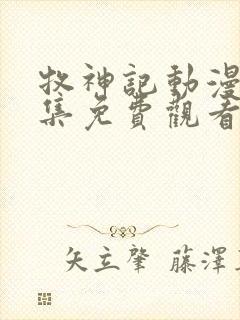 牧神記動漫
集免費觀看
矢立肇 藤澤